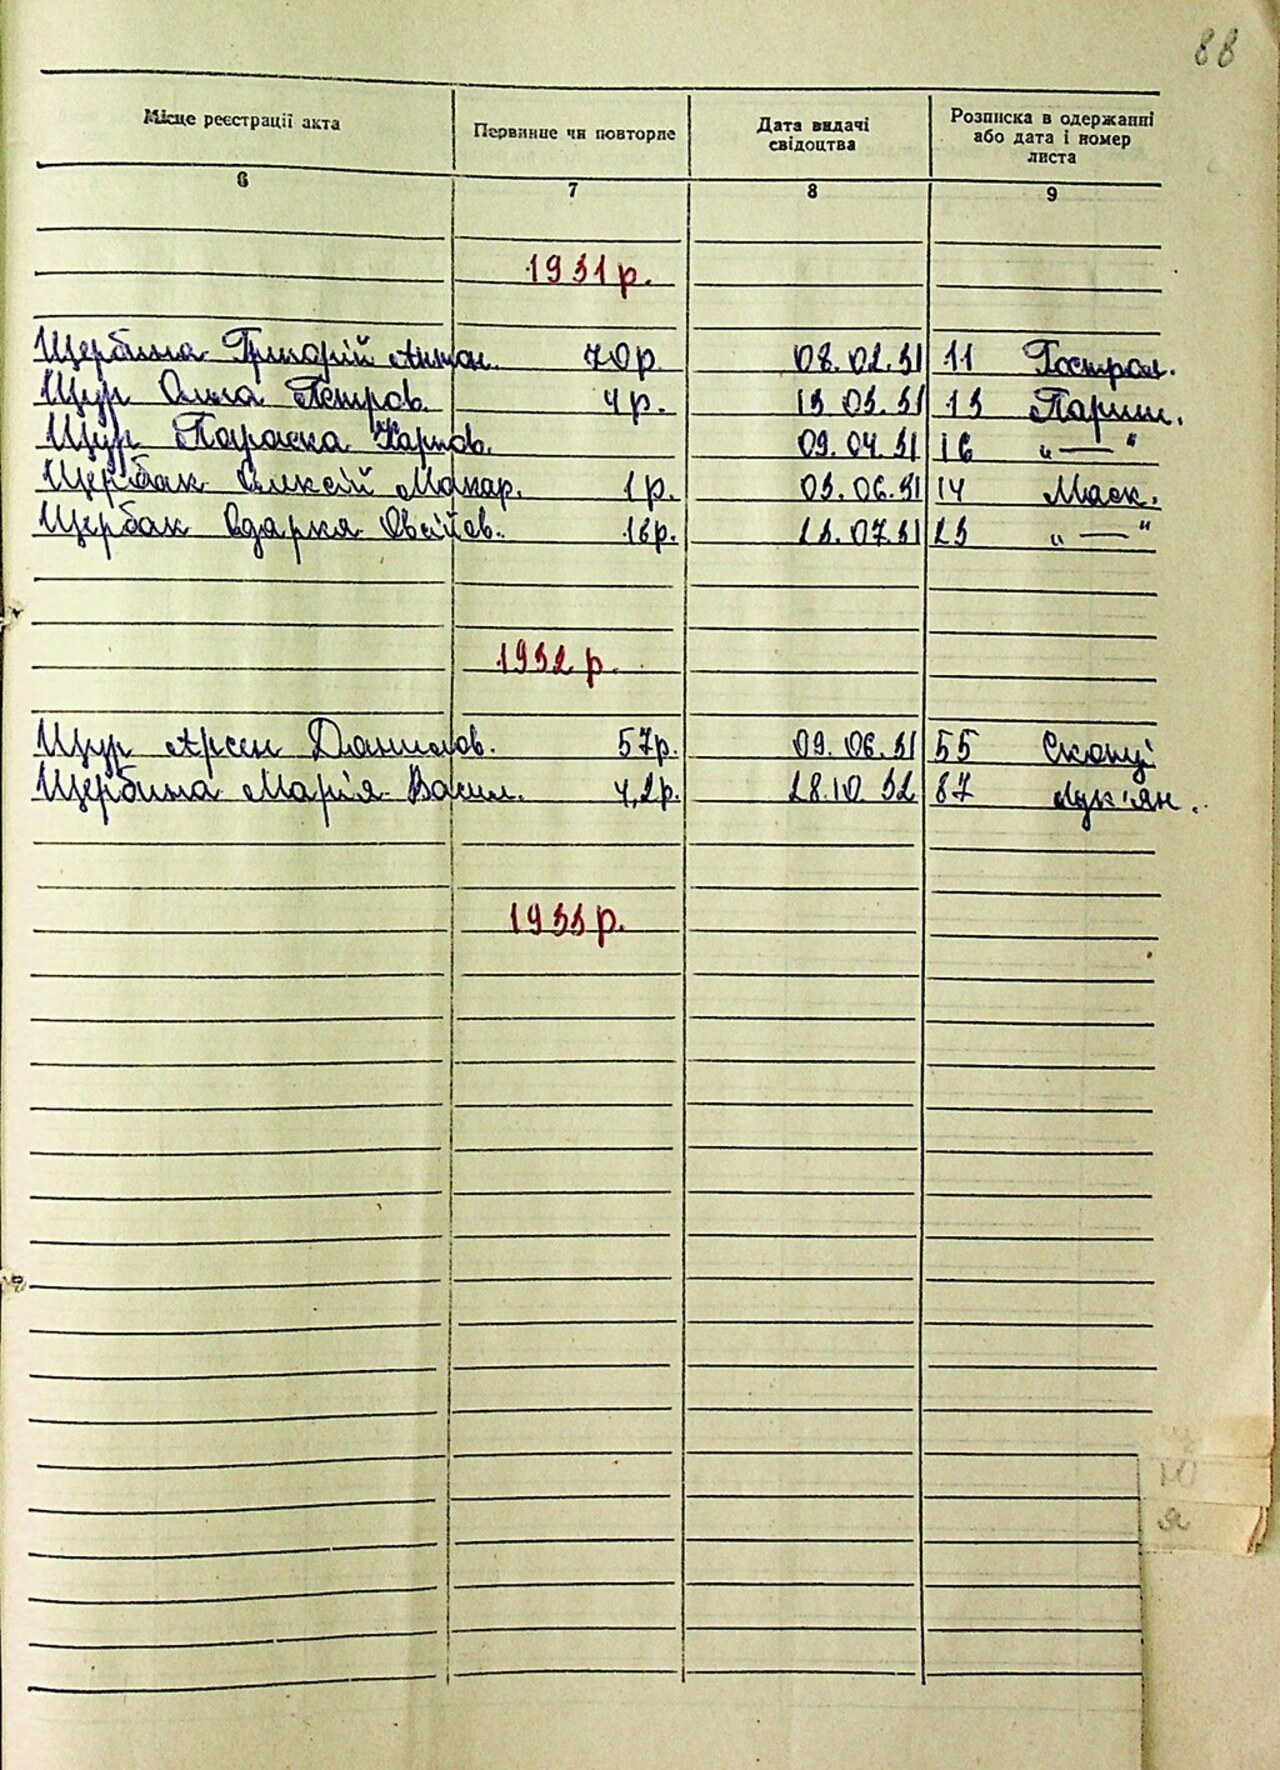 88
Місце реєстрації акта Первинне чи повторне Дата видачі свідоцтва Розписка в одержанні або дата і номер листа
6 7 8 9
1931 р.
Щербина Григорій Антон. 70 р. 08.02.31 11 Гостром.
Щур Анна Петров. 4 р. 13.03.31 13 Париш.
Щур Параска Карпов. 09.04.31 16 „—"
Щербак Олексій Макар. 1 р. 03.06.31 14 Маск.
Щербак Одаркя Овсійєв. 16 р. 23.07.31 23 „—"
1932 р.
Щур Арсен Данилов. 57 р. 09.06.31 55 Скопці
Щербина Марія Васил. 4,2 р. 28.10.32 87 Лук'ян.
1933 р.
Ю
Я